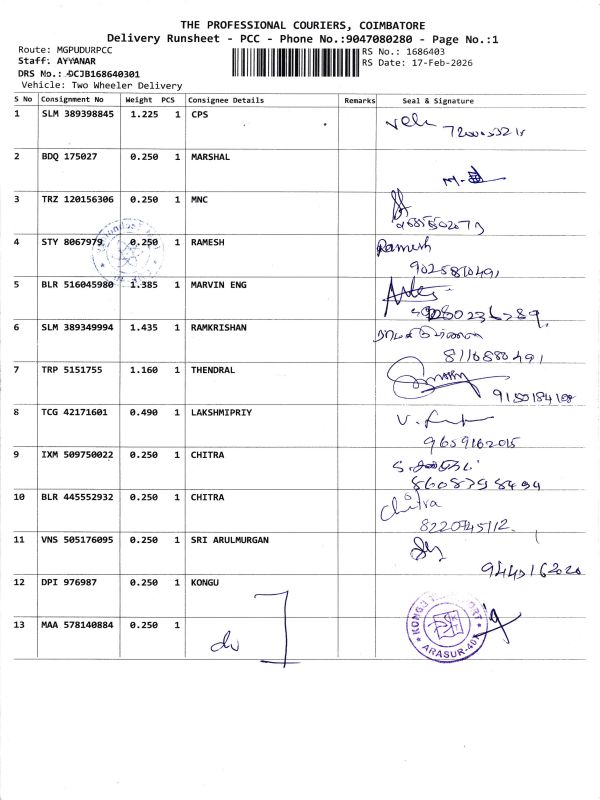 THE PROFESSIONAL COURIERS, COIMBATORE
Delivery Runsheet - PCC - Phone No.:9047080280 - Page No.:1
Route: MGPUDURPCC
RS No.: 1686403
Staff: AYYANAR
RS Date: 17-Feb-2026
DRS No.: DCJB168640301
Vehicle: Two Wheeler Delivery
S No Consignment No Weight PCS Consignee Details Remarks Seal & Signature
1 SLM 389398845 1.225 1 CPS
2 BDQ 175027 0.250 1 MARSHAL
3 TRZ 120156306 0.250 1 MNC
4 STY 8067979 0.250 1 RAMESH Ramesh
9025870491
5 BLR 516045980 1.385 1 MARVIN ENG
6 SLM 389349994 1.435 1 RAMKRISHAN
8116880491
7 TRP 5151755 1.160 1 THENDRAL
9150184108
8 TCG 42171601 0.490 1 LAKSHMIPRIY
9659162015
9 IXM 509750022 0.250 1 CHITRA
8608398494
10 BLR 445552932 0.250 1 CHITRA Chitra
8220745112
11 VNS 505176095 0.250 1 SRI ARULMURGAN
12 DPI 976987 0.250 1 KONGU
13 MAA 578140884 0.250 1 do
ARASUR-407